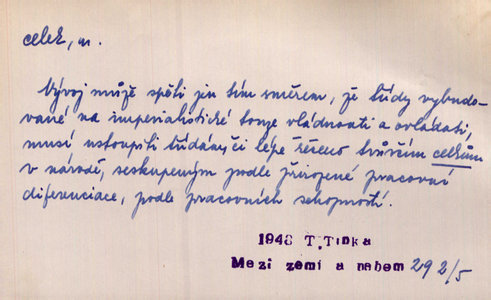 celek, m.
Vývoj může spěti jen tím směrem, že třídy vybudo-
vané na imperialistické touze vládnouti a ovládati,
musí ustoupiti třídám, či lépe řečeno tvůrčím celkům
v národě, seskupeným podle přirozené pracovní
diferenciace, podle pracovních schopností.
1948 T. Trnka
Mezi zemí a nebem 292/5